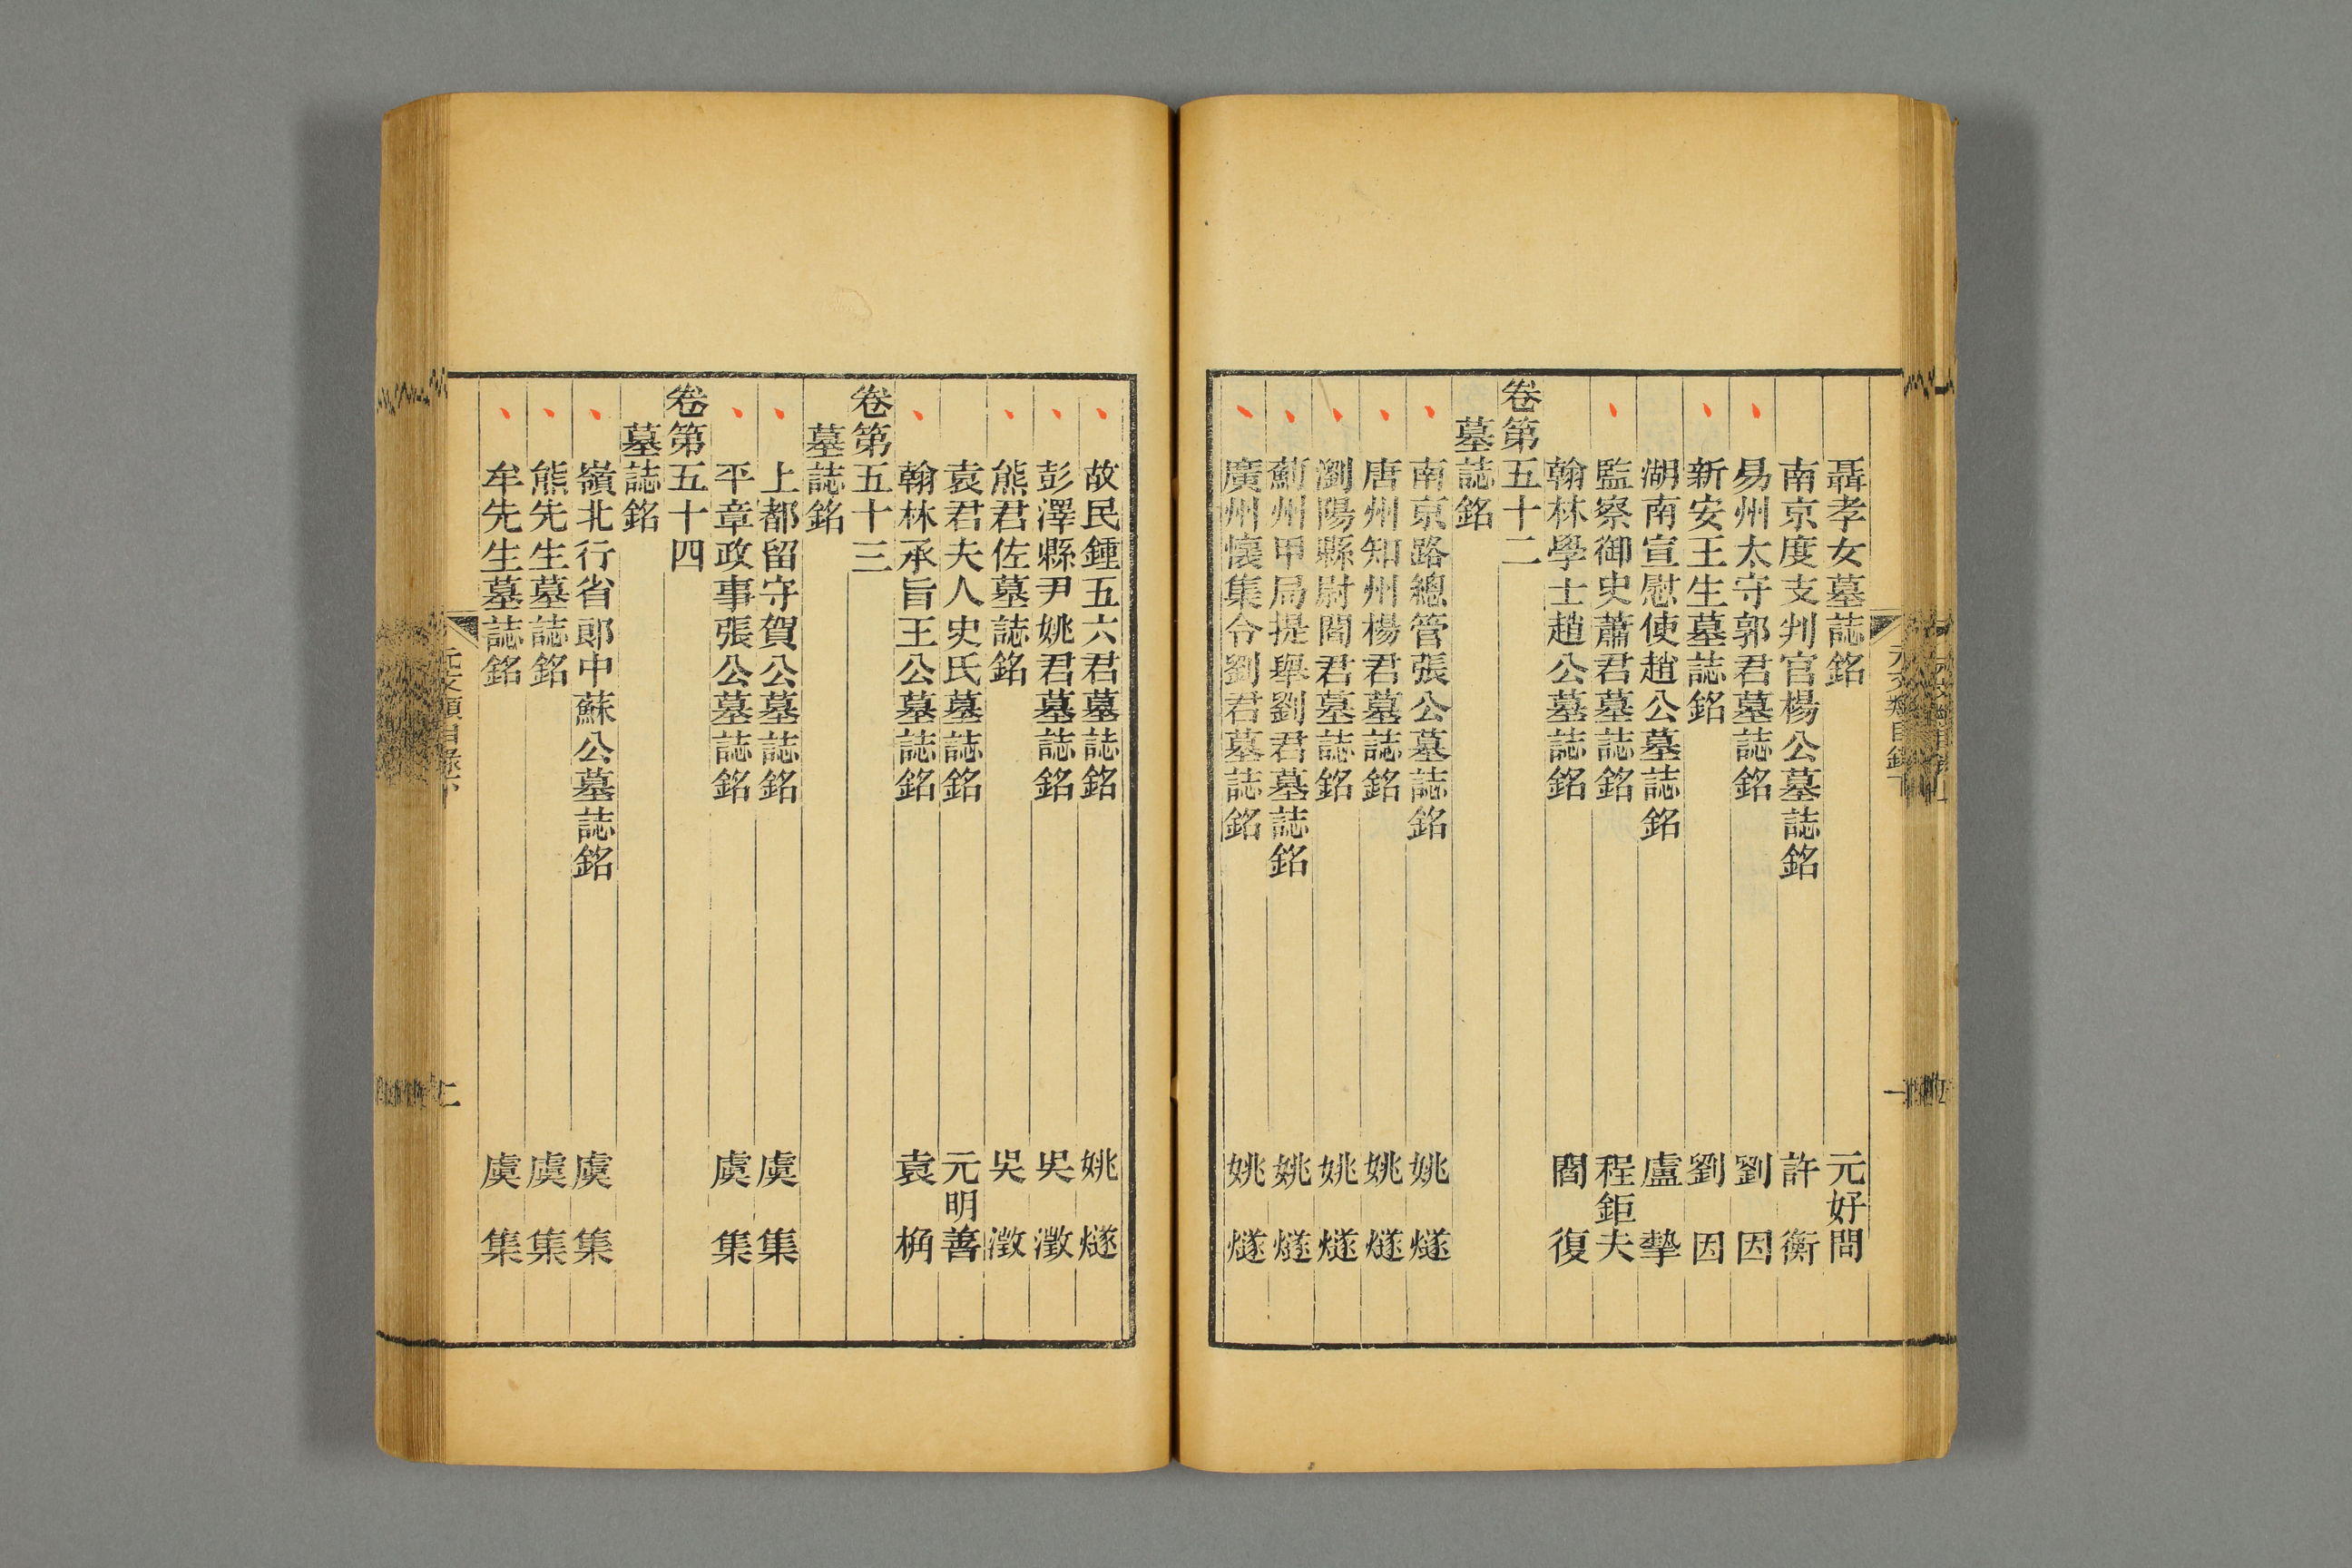 聶孝女墓誌銘 元好問
南京度支判官楊公墓誌銘 許衡
易州太守郭君墓誌銘 劉因
新安王生墓誌銘 劉因
湖南宣慰使趙公墓誌銘 盧摯
監察御史蕭君墓誌銘 程鉅夫
翰林學士趙公墓誌銘 閻復
卷第五十二
墓誌銘
南京路總管張公墓誌銘 姚燧
唐州知州楊君墓誌銘 姚燧
瀏陽縣尉閻君墓誌銘 姚燧
薊州甲局提舉劉君墓誌銘 姚燧
廣州懷集令劉君墓誌銘 姚燧
故民鍾五六君墓誌銘 姚燧
彭澤縣尹姚君墓誌銘 吳澂
熊君佐墓誌銘 吳澂
袁君夫人史氏墓誌銘 元明善
翰林承旨王公墓誌銘 袁桷
卷第五十三
墓誌銘
上都留守賀公墓誌銘 虞集
平章政事張公墓誌銘 虞集
卷第五十四
墓誌銘
嶺北行省郎中蘇公墓誌銘 虞集
熊先生墓誌銘 虞集
牟先生墓誌銘 虞集